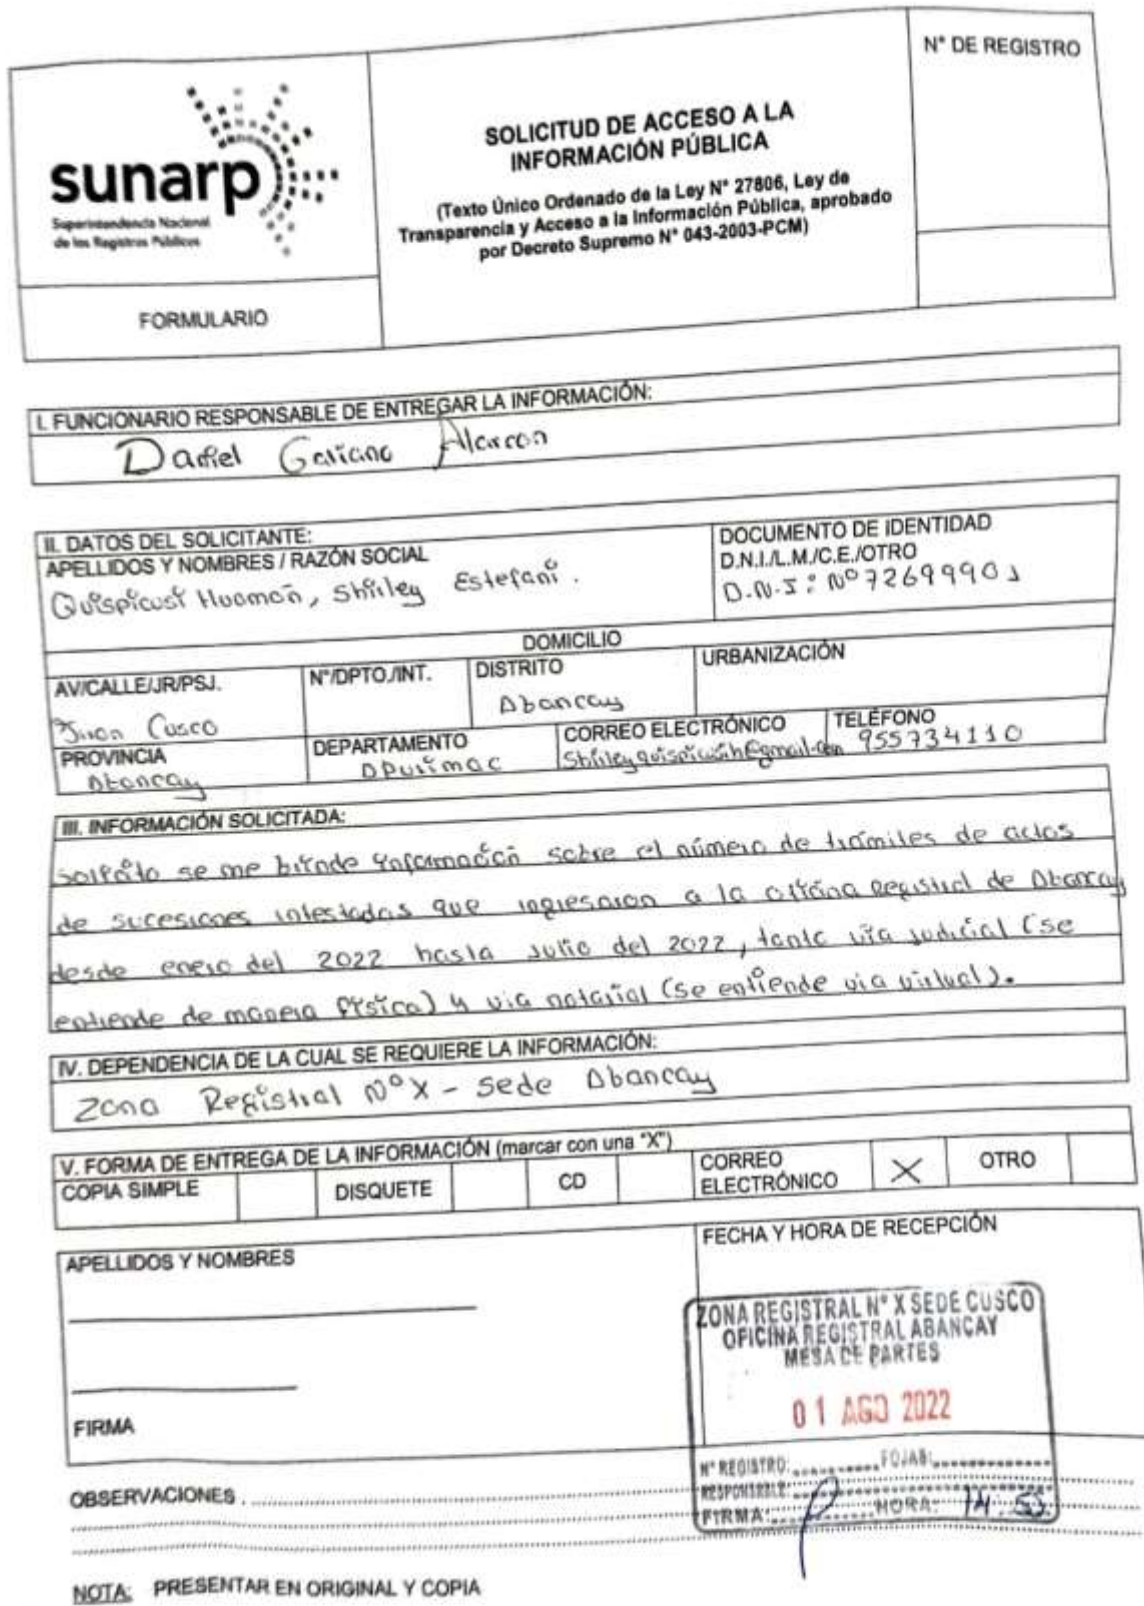 N° DE REGISTRO
sunarp
Superintendencia Nacional
de los Registros Públicos
SOLICITUD DE ACCESO A LA
INFORMACIÓN PÚBLICA
(Texto Único Ordenado de la Ley N° 27806, Ley de
Transparencia y Acceso a la Información Pública, aprobado
por Decreto Supremo N° 043-2003-PCM)
FORMULARIO
I. FUNCIONARIO RESPONSABLE DE ENTREGAR LA INFORMACIÓN:
Daniel Galiano Alarcon
II. DATOS DEL SOLICITANTE:
APELLIDOS Y NOMBRES / RAZÓN SOCIAL
Quispicusi Huamán, Shirley Estefani.
DOCUMENTO DE IDENTIDAD
D.N.I./L.M./C.E./OTRO
D.N.I: N° 72699901
DOMICILIO
AV/CALLE/JR/PSJ.
N°/DPTO./INT.
DISTRITO
URBANIZACIÓN
Cusco
Abancay
PROVINCIA
DEPARTAMENTO
CORREO ELECTRÓNICO
TELÉFONO
Abancay
Apurimac
955734110
III. INFORMACIÓN SOLICITADA:
Solicito se me brinde información sobre el número de trámites de actos
de sucesiones intestadas que ingresaron a la oficina registral de Abancay
desde enero del 2022 hasta Julio del 2022, tanto vía judicial (se
entiende de manera física) y via notarial (se entiende via virtual).
IV. DEPENDENCIA DE LA CUAL SE REQUIERE LA INFORMACIÓN:
Zona Registral N° X - Sede Abancay
V. FORMA DE ENTREGA DE LA INFORMACIÓN (marcar con una "X")
COPIA SIMPLE
DISQUETE
CD
CORREO
ELECTRÓNICO
X
OTRO
APELLIDOS Y NOMBRES
FECHA Y HORA DE RECEPCIÓN
ZONA REGISTRAL N° X SEDE CUSCO
OFICINA REGISTRAL ABANCAY
MESA DE PARTES
01 AGO 2022
FIRMA
N° REGISTRO: FOJAS:
RESPONSABLE:
FIRMA: HORA: 14:53
OBSERVACIONES
NOTA: PRESENTAR EN ORIGINAL Y COPIA